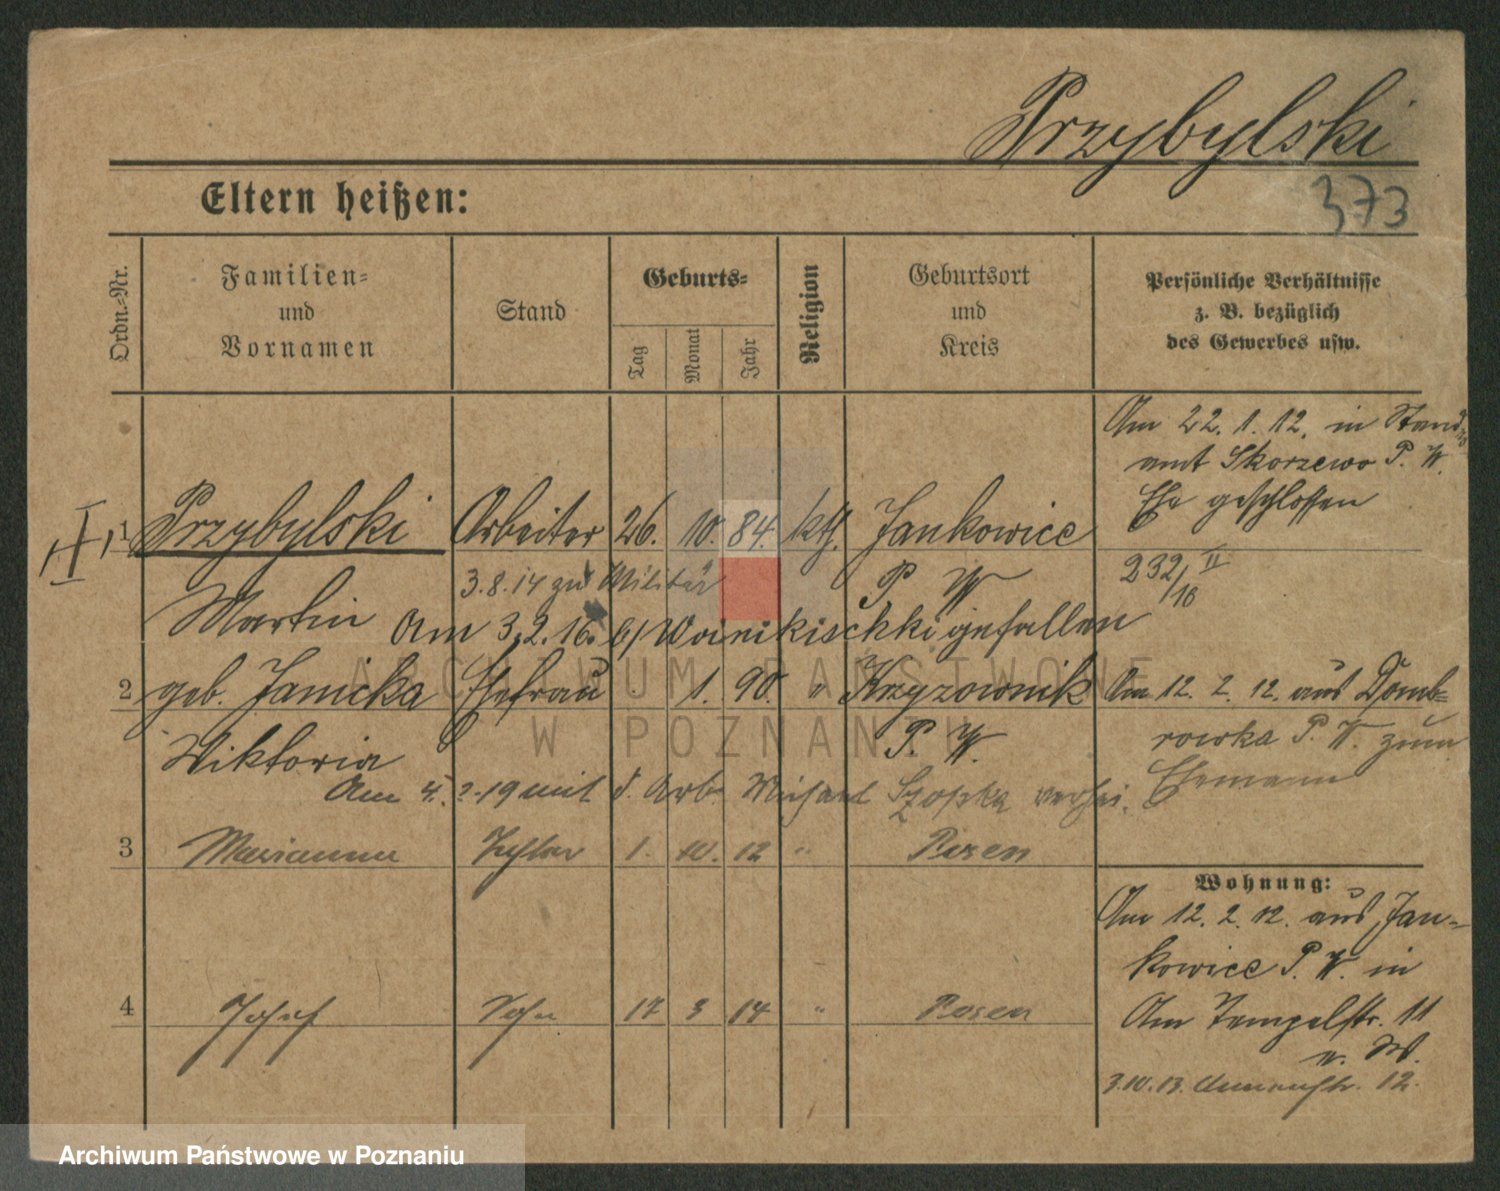 Przybylski
Eltern heißen:
373
Ordn.-Nr.
Familien-
und
Vornamen
Stand
Geburts-
Tag
Monat
Jahr
Religion
Geburtsort
und
Kreis
Persönliche Verhältnisse
z. B. bezüglich
des Gewerbes usw.
Am 22. 1. 12. in Stands
amt Skorzewo P. W.
Ehe geschlossen
1 Przybylski Arbeiter 26. 10. 84. kth. Jankowice
232/16 II
3.8.14 zum Militär P. W.
Martin Am 3.2.16. b/ gefallen
2 geb. Janicka Ehefrau 1. 90. " Krzyzownik
Am 12. 2. 12. aus Domb-
rowka P. W. zum
Ehemann
Wiktoria P. W.
Am 4. 2. 19 mit d. Arb. Szopka verhei.
3 Marianna Tochter 1. 10. 12 " Posen
Wohnung:
Am 12. 2. 12. aus Jan-
kowice P. W. in
Am Tempelstr. 11
3.10.13. 12.
4 Josef Sohn 17 3 14 " Posen
ARCHIWUM PAŃSTWOWE
W POZNANIU
Archiwum Państwowe w Poznaniu